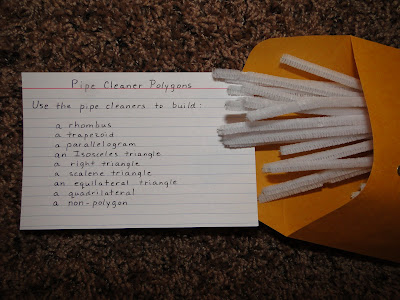 Pipe Cleaner Polygons
Use the pipe cleaners to build:
a rhombus
a trapezoid
a parallelogram
an Isosceles triangle
a right triangle
a scalene triangle
an equilateral triangle
a quadrilateral
a non-polygon